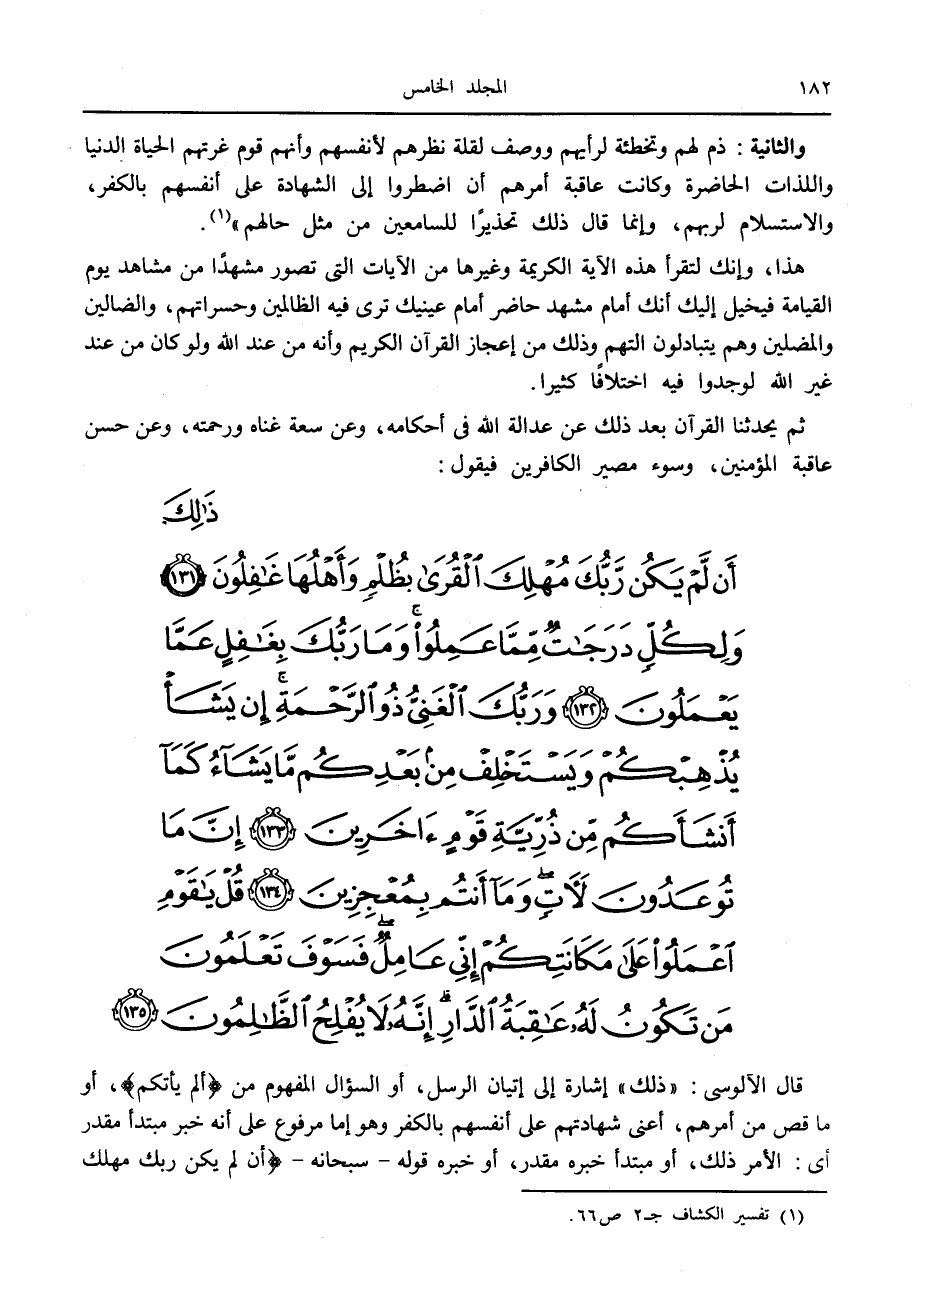 ١٨٢ المجلد الخامس
والثانية : ذم لهم وتخطئة لرأيهم ووصف لقلة نظرهم لأنفسهم وأنهم قوم غرتهم الحياة الدنيا
واللذات الحاضرة وكانت عاقبة أمرهم أن اضطروا إلى الشهادة على أنفسهم بالكفر،
والاستسلام لربهم، وإنما قال ذلك تحذيرًا للسامعين من مثل حالهم»(١).
هذا، وإنك لتقرأ هذه الآية الكريمة وغيرها من الآيات التى تصور مشهدًا من مشاهد يوم
القيامة فيخيل إليك أنك أمام مشهد حاضر أمام عينيك ترى فيه الظالمين وحسراتهم، والضالين
والمضلين وهم يتبادلون التهم وذلك من إعجاز القرآن الكريم وأنه من عند الله ولو كان من عند
غير الله لوجدوا فيه اختلافًا كثيرا.
ثم يحدثنا القرآن بعد ذلك عن عدالة الله فى أحكامه، وعن سعة غناه ورحمته، وعن حسن
عاقبة المؤمنين، وسوء مصير الكافرين فيقول :
ذَٰلِكَ
أَن لَّمْ يَكُن رَّبُّكَ مُهْلِكَ ٱلْقُرَىٰ بِظُلْمٍ وَأَهْلُهَا غَٰفِلُونَ ١٣١
وَلِكُلٍّ دَرَجَٰتٌ مِّمَّا عَمِلُوا۟ ۚ وَمَا رَبُّكَ بِغَٰفِلٍ عَمَّا
يَعْمَلُونَ ١٣٢ وَرَبُّكَ ٱلْغَنِىُّ ذُو ٱلرَّحْمَةِ ۚ إِن يَشَأْ
يُذْهِبْكُمْ وَيَسْتَخْلِفْ مِنۢ بَعْدِكُم مَّا يَشَآءُ كَمَآ
أَنشَأَكُم مِّن ذُرِّيَّةِ قَوْمٍ ءَاخَرِينَ ١٣٣ إِنَّ مَا
تُوعَدُونَ لَءَاتٍ ۖ وَمَآ أَنتُم بِمُعْجِزِينَ ١٣٤ قُلْ يَٰقَوْمِ
ٱعْمَلُوا۟ عَلَىٰ مَكَانَتِكُمْ إِنِّى عَامِلٌ ۖ فَسَوْفَ تَعْلَمُونَ
مَن تَكُونُ لَهُۥ عَٰقِبَةُ ٱلدَّارِ ۗ إِنَّهُۥ لَا يُفْلِحُ ٱلظَّٰلِمُونَ ١٣٥
قال الآلوسى : «ذلك» إشارة إلى إتيان الرسل، أو السؤال المفهوم من ﴿ألم يأتكم﴾، أو
ما قص من أمرهم، أعنى شهادتهم على أنفسهم بالكفر وهو إما مرفوع على أنه خبر مبتدأ مقدر
أى : الأمر ذلك، أو مبتدأ خبره مقدر، أو خبره قوله - سبحانه - ﴿أن لم يكن ربك مهلك
(١) تفسير الكشاف جـ٢ ص٦٦.